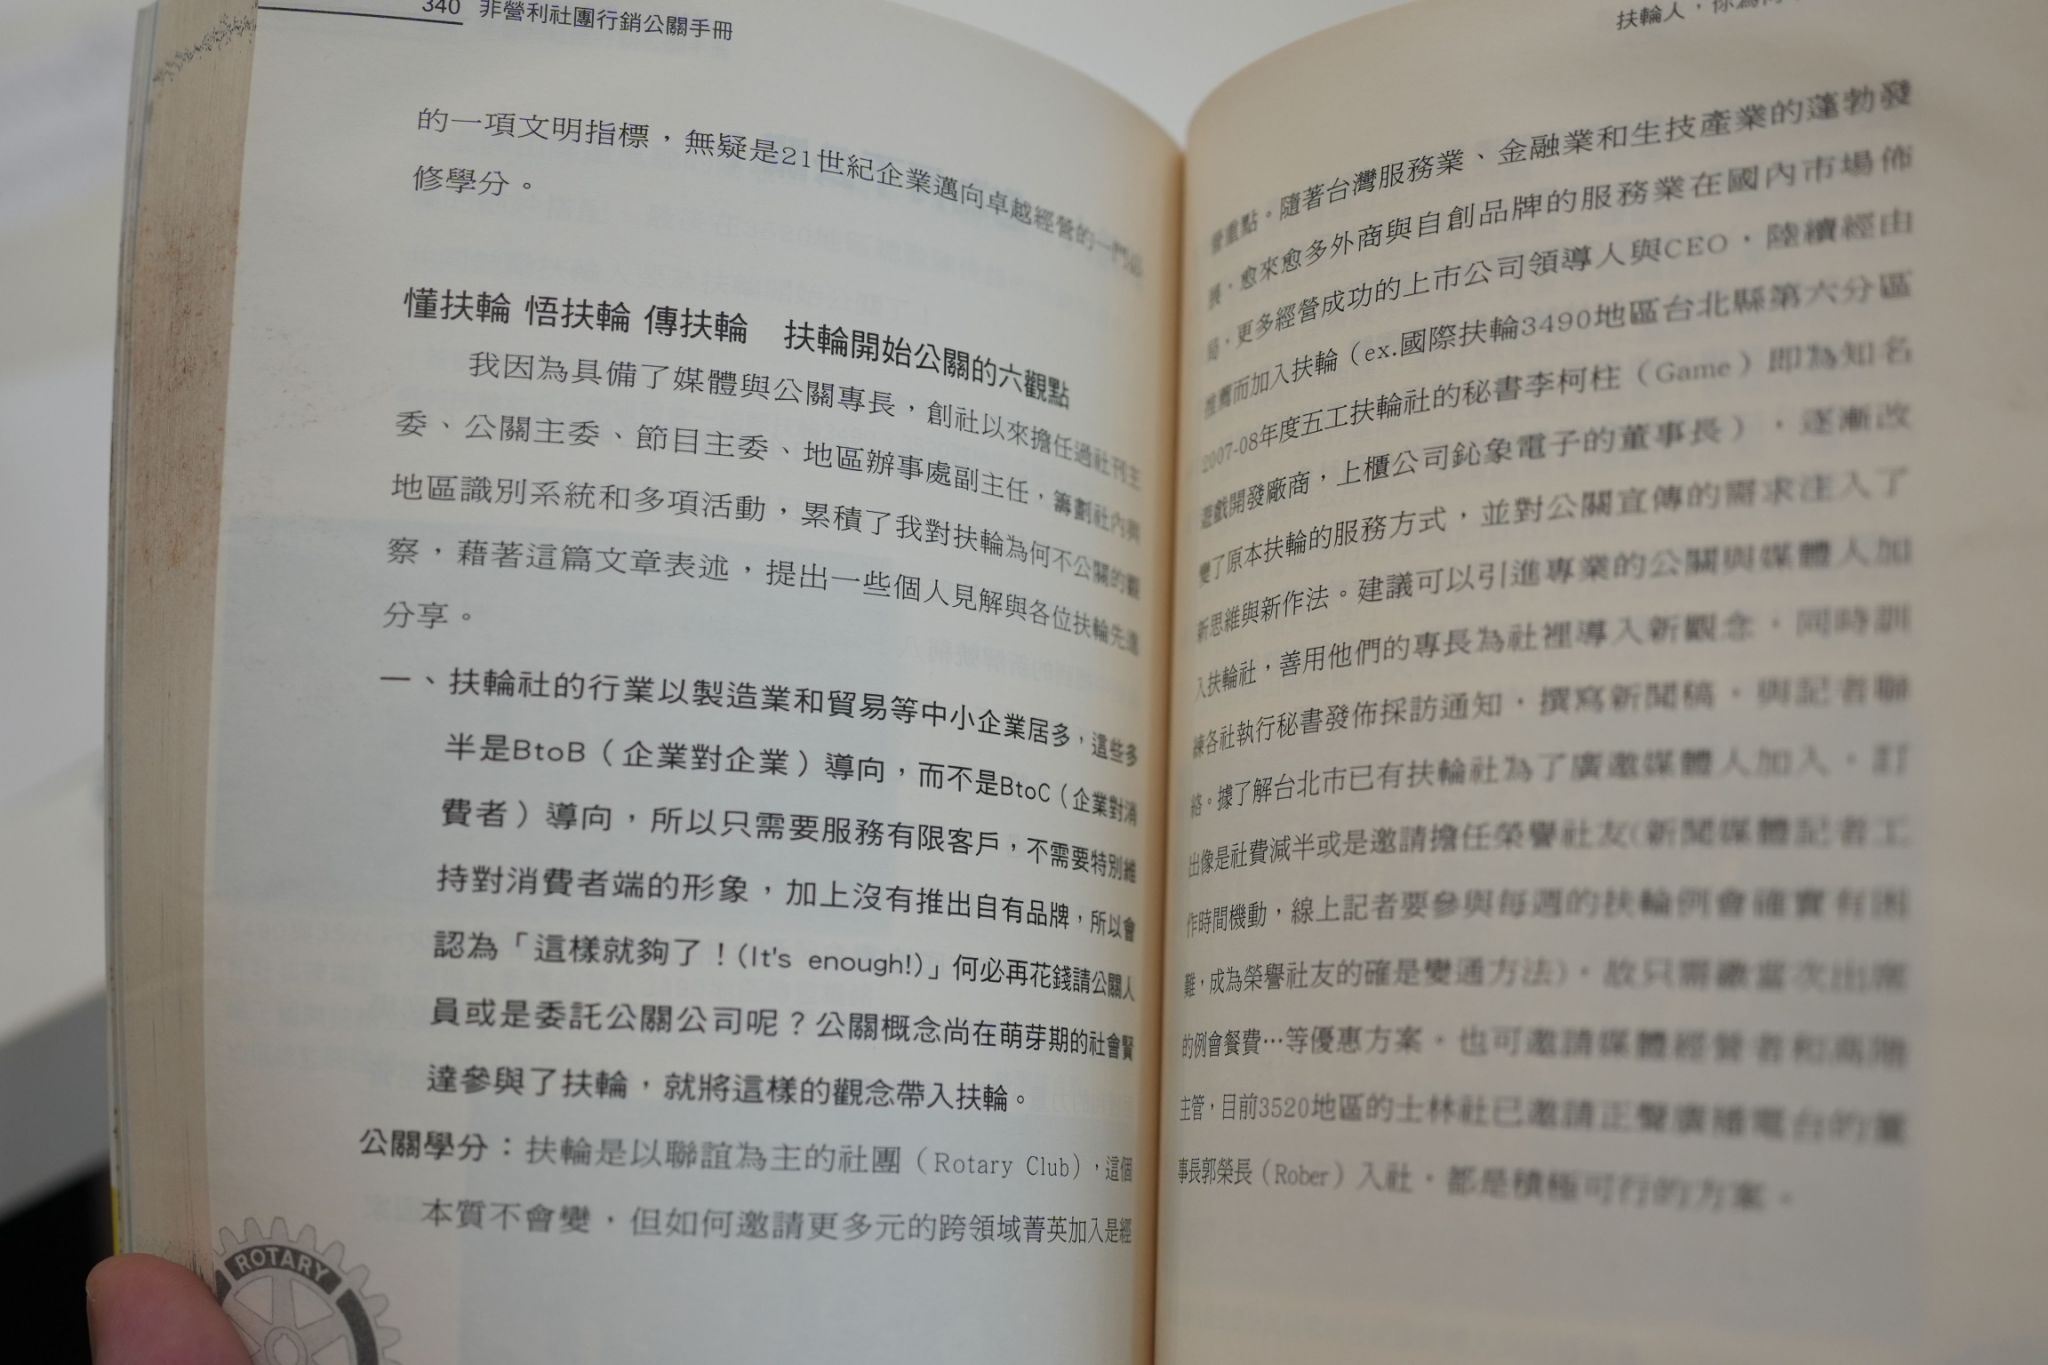 340 非營利社團行銷公關手冊
的一項文明指標，無疑是21世紀企業邁向卓越經營的一門必
修學分。
懂扶輪 悟扶輪 傳扶輪　扶輪開始公關的六觀點
我因為具備了媒體與公關專長，創社以來擔任過社刊主
委、公關主委、節目主委、地區辦事處副主任，籌劃社內與
地區識別系統和多項活動，累積了我對扶輪為何不公關的觀
察，藉著這篇文章表述，提出一些個人見解與各位扶輪先進
分享。
一、扶輪社的行業以製造業和貿易等中小企業居多，這些多
半是BtoB（企業對企業）導向，而不是BtoC（企業對消
費者）導向，所以只需要服務有限客戶，不需要特別維
持對消費者端的形象，加上沒有推出自有品牌，所以會
認為「這樣就夠了！(It's enough!)」何必再花錢請公關人
員或是委託公關公司呢？公關概念尚在萌芽期的社會賢
達參與了扶輪，就將這樣的觀念帶入扶輪。
公關學分：扶輪是以聯誼為主的社團（Rotary Club），這個
本質不會變，但如何邀請更多元的跨領域菁英加入是經
ROTARY
扶輪人，你為何
營重點。隨著台灣服務業、金融業和生技產業的蓬勃發
展，愈來愈多外商與自創品牌的服務業在國內市場佈
局，更多經營成功的上市公司領導人與CEO，陸續經由
推薦而加入扶輪（ex.國際扶輪3490地區台北縣第六分區
2007-08年度五工扶輪社的秘書李柯柱（Game）即為知名
遊戲開發廠商，上櫃公司鈊象電子的董事長），逐漸改
變了原本扶輪的服務方式，並對公關宣傳的需求注入了
新思維與新作法。建議可以引進專業的公關與媒體人加
入扶輪社，善用他們的專長為社裡導入新觀念，同時訓
練各社執行秘書發佈採訪通知，撰寫新聞稿，與記者聯
絡。據了解台北市已有扶輪社為了廣邀媒體人加入，訂
出像是社費減半或是邀請擔任榮譽社友(新聞媒體記者工
作時間機動，線上記者要參與每週的扶輪例會確實有困
難，成為榮譽社友的確是變通方法)，故只需繳當次出席
的例會餐費…等優惠方案，也可邀請媒體經營者和高階
主管，目前3520地區的士林社已邀請正聲廣播電台的董
事長郭榮長（Rober）入社，都是積極可行的方案。